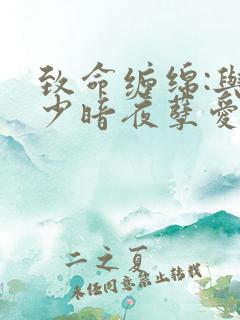 致命缠绵:与
少暗夜孽爱
二之夏
未经同意禁止转载